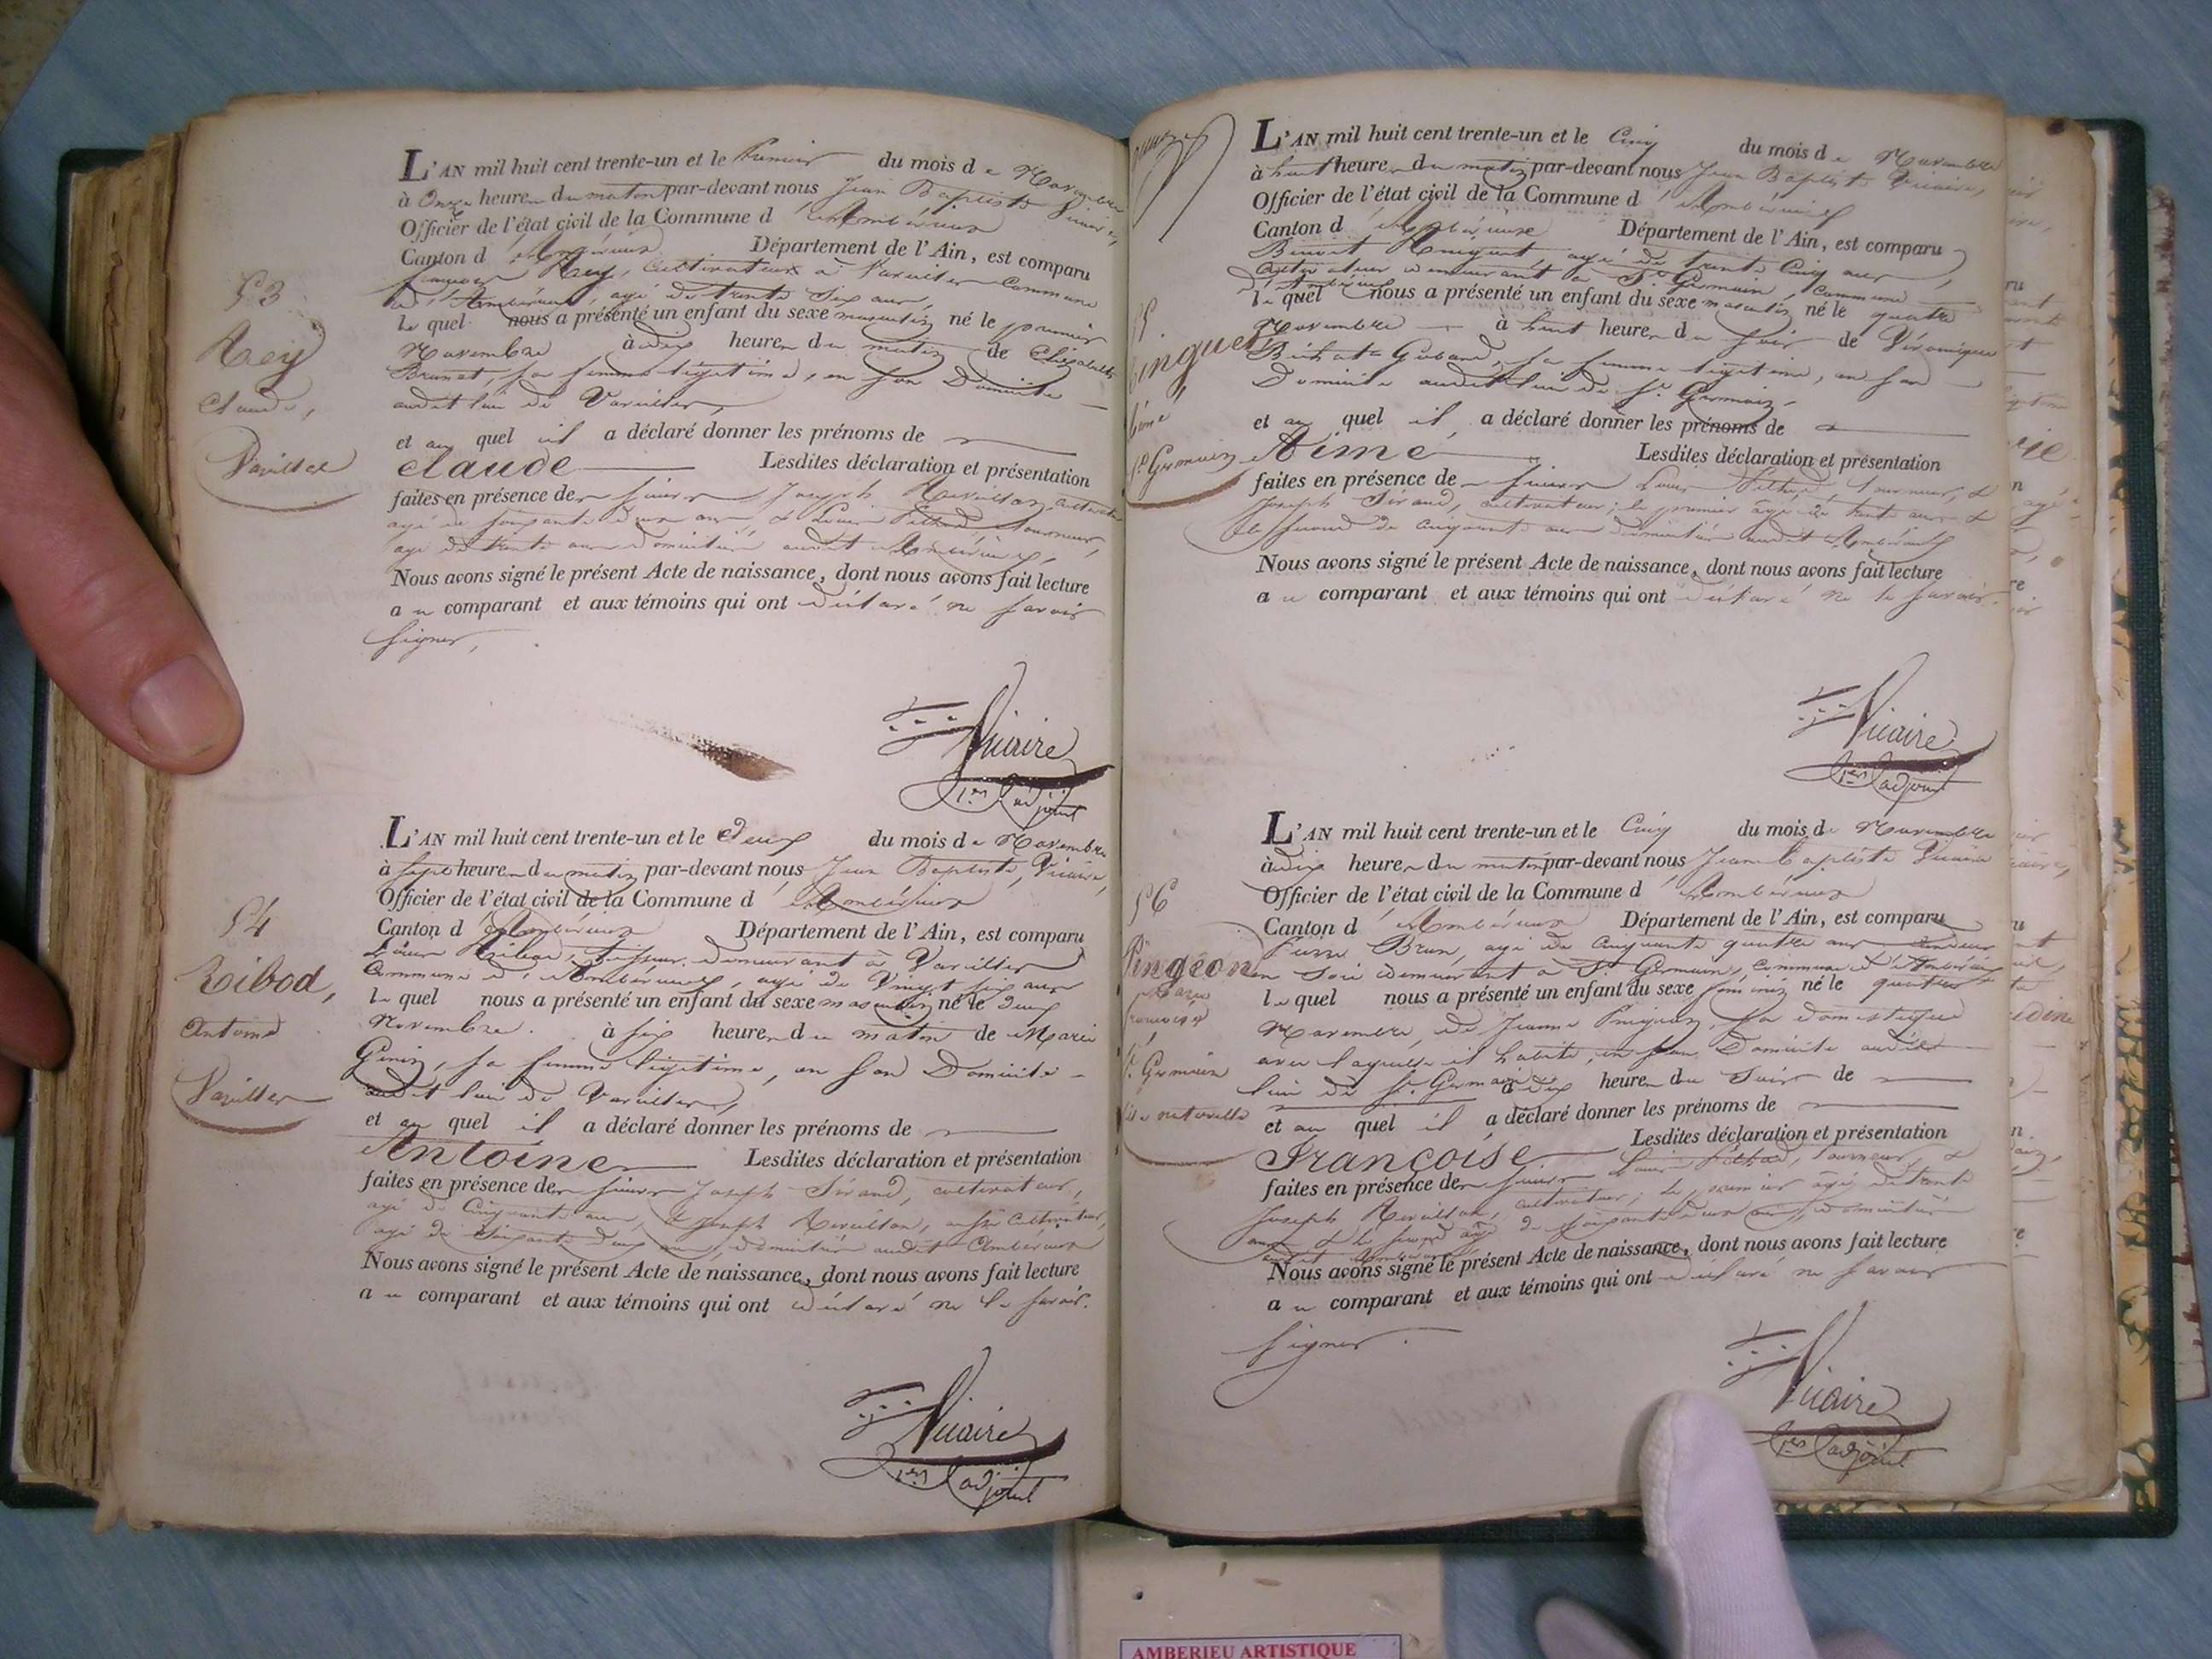 53
Rey
Claude,
Vareilles
L'AN mil huit cent trente-un et le Premier du mois de Novembre
à Onze heures du matin par-devant nous Jean Baptiste Vicaire,
Officier de l'état civil de la Commune d'Ambérieux
Canton d'Ambérieux Département de l'Ain, est comparu
Rey, Cultivateur à Vareilles Commune
d'Ambérieux, agé de trente Six ans,
lequel nous a présenté un enfant du sexe masculin né le premier
Novembre à dix heures du matin de Elizabeth
Brunet, sa femme légitime, en son Domicile
audit lieu de Vareilles,
et auquel il a déclaré donner les prénoms de
Claude Lesdites déclaration et présentation
faites en présence des sieurs Joseph Reveillon, cultivateur
agé de soixante deux ans, & Louis Pethod, tourneur,
agé de trente ans domiciliés audit Ambérieux,
Nous avons signé le présent Acte de naissance, dont nous avons fait lecture
au comparant et aux témoins qui ont déclaré ne savoir
signer,
Vicaire
1er adjoint
54
Ribod,
Antoine
Vareilles
L'AN mil huit cent trente-un et le deux du mois de Novembre
à sept heures du matin par-devant nous Jean Baptiste Vicaire,
Officier de l'état civil de la Commune d'Ambérieux
Canton d'Ambérieux Département de l'Ain, est comparu
Ribod, Tisseur demeurant à Vareilles
Commune d'Ambérieux, agé de Vingt six ans
lequel nous a présenté un enfant du sexe masculin né le deux
Novembre à six heures du matin de Marie
Genin, sa femme légitime, en son Domicile
audit lieu de Vareilles,
et auquel il a déclaré donner les prénoms de
Antoine Lesdites déclaration et présentation
faites en présence des sieurs Joseph Sirand, cultivateur,
agé de Cinquante ans, & Joseph Reveillon, aussi Cultivateur,
agé de Soixante deux ans, domiciliés audit Ambérieux
Nous avons signé le présent Acte de naissance, dont nous avons fait lecture
au comparant et aux témoins qui ont déclaré ne le savoir.
Vicaire
1er adjoint
St Germain
L'AN mil huit cent trente-un et le Cinq du mois de Novembre
à huit heures du matin par-devant nous Jean Baptiste Vicaire,
Officier de l'état civil de la Commune d'Ambérieux
Canton d'Ambérieux Département de l'Ain, est comparu
Benoit agé de trente Cinq ans,
Cultivateur demeurant à St Germain, commune
d'Ambérieux
lequel nous a présenté un enfant du sexe masculin né le quatre
Novembre à huit heures du soir de Véronique
sa femme légitime, en son
Domicile audit lieu de St Germain,
et auquel il a déclaré donner les prénoms de
Aimé Lesdites déclaration et présentation
faites en présence des sieurs Louis Pethod, tourneur, &
Joseph Sirand, cultivateur; le premier agé de trente ans &
le second de cinquante ans domiciliés audit Ambérieux
Nous avons signé le présent Acte de naissance, dont nous avons fait lecture
au comparant et aux témoins qui ont déclaré ne le savoir.
Vicaire
1er adjoint
56
Pingeon
françoise
St Germain
naturelle
L'AN mil huit cent trente-un et le Cinq du mois de Novembre
à dix heures du matin par-devant nous Jean Baptiste Vicaire
Officier de l'état civil de la Commune d'Ambérieux
Canton d'Ambérieux Département de l'Ain, est comparu
Pierre Brun, agé de Cinquante quatre ans
demeurant à St Germain, commune d'Ambérieux
lequel nous a présenté un enfant du sexe féminin né le quatre
Novembre, de Jeanne Pingeon, sa domestique
avec laquelle il habite, en son Domicile audit
lieu de St Germain à dix heures du Soir de
et auquel il a déclaré donner les prénoms de
Françoise Lesdites déclaration et présentation
faites en présence des sieurs Louis Pethod, tourneur, &
Joseph Reveillon, cultivateur; le premier agé de trente
ans & le second agé de soixante deux ans, domiciliés
audit Ambérieux
Nous avons signé le présent Acte de naissance, dont nous avons fait lecture
au comparant et aux témoins qui ont déclaré ne savoir
signer.
Vicaire
1er adjoint
AMBERIEU ARTISTIQUE